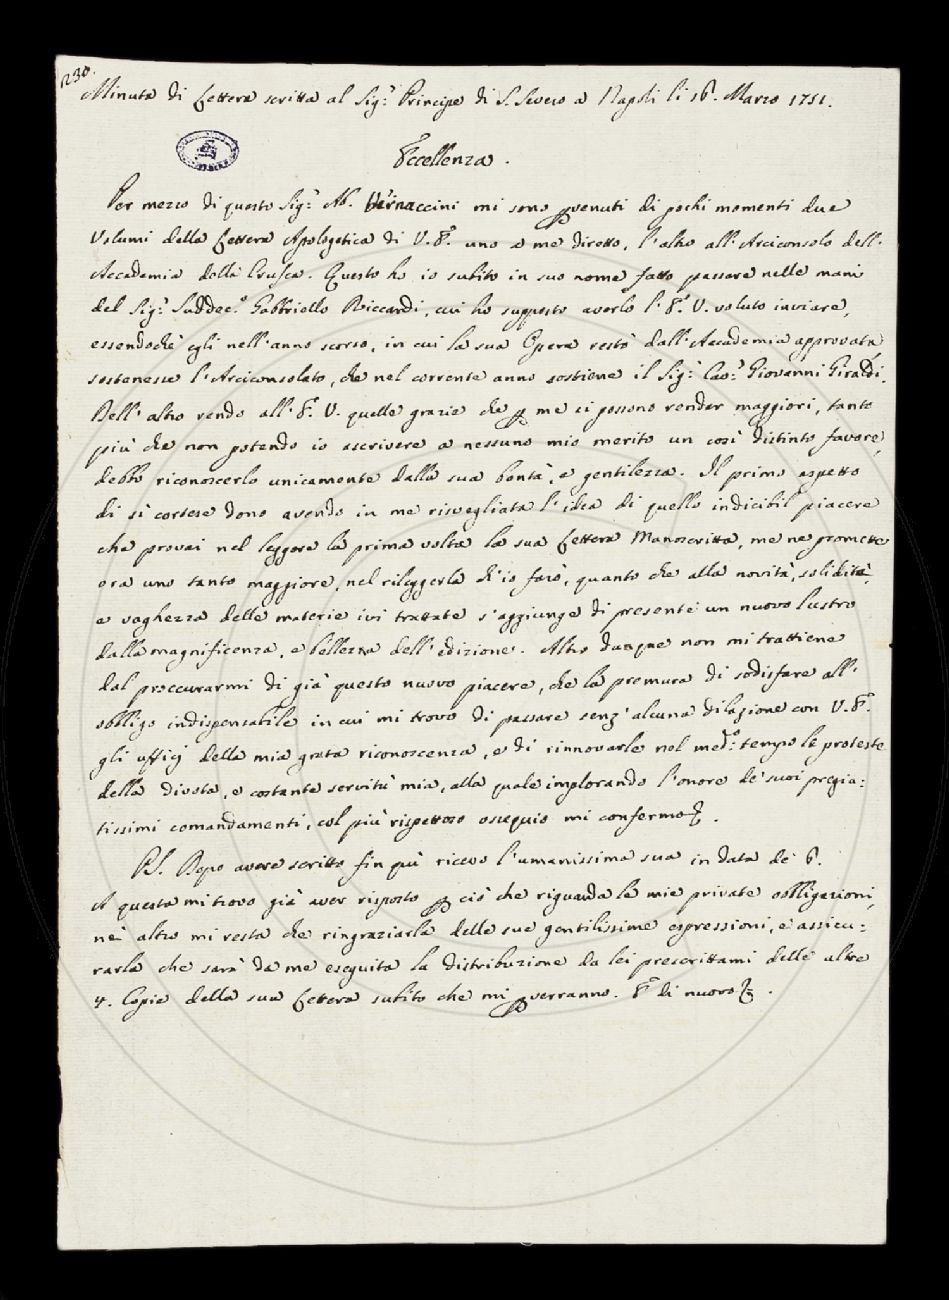 1230.
Minuta di Lettera scritta al Sig.e Principe di S. Severo a Napoli li 16. Marzo 1751.
Eccellenza.
Per mezzo di questo Sig.e Ab. Vernaccini mi sono pervenuti di pochi momenti due
Volumi della Lettera Apologetica di V. E. uno a me diretto, l'altro all'Arciconsolo dell'
Accademia della Crusca. Questo ho io subito in suo nome fatto passare nelle mani
del Sig.e Suddec.o Gabbriello Riccardi, cui ho supposto averlo l'E. V. voluto inviare,
essendochè egli nell'anno scorso, in cui la sua Opera restò dall'Accademia approvata
sostenesse l'Arciconsolato, che nel corrente anno sostiene il Sig.e Cav.e Giovanni Giraldi.
Dell'altro rendo all'E. V. quelle grazie che per me si possono render maggiori, tanto
più che non potendo io ascrivere a nessuno mio merito un così distinto favore,
debbo riconoscerlo unicamente dalla sua bontà, e gentilezza. Il primo aspetto
di sì cortese dono avendo in me risvegliata l'idea di quello indicibil piacere
che provai nel leggere la prima volta la sua Lettera Manoscritta, me ne promette
ora uno tanto maggiore, nel rileggerla ch'io farò, quanto che alla novità, solidità,
e vaghezza delle materie ivi trattate s'aggiunge di presente un nuovo lustro
dalla magnificenza, e bellezza dell'edizione. Altro dunque non mi trattiene
dal proccurarmi di già questo nuovo piacere, che la premura di sodisfare all'
obbligo indispensabile in cui mi trovo di passare senz'alcuna dilazione con V. E.
gli uffizj della mia grata riconoscenza, e di rinnovarle nel med.o tempo le proteste
della divota, e costante servitù mia, alla quale implorando l'onore de' suoi pregia:
tissimi comandamenti, col più rispettoso ossequio mi confermo
PS. Dopo avere scritto fin quì ricevo l'umanissima sua in data de' 6.
A questa mi trovo già aver risposto per ciò che riguarda le mie private obbligazioni,
nè altro mi resta che ringraziarla delle sue gentilissime espressioni, e assicu:
rarla che sarà da me eseguita la distribuzione da lei prescrittami delle altre
4. Copie della sua Lettera subito che mi perverranno. E di nuovo